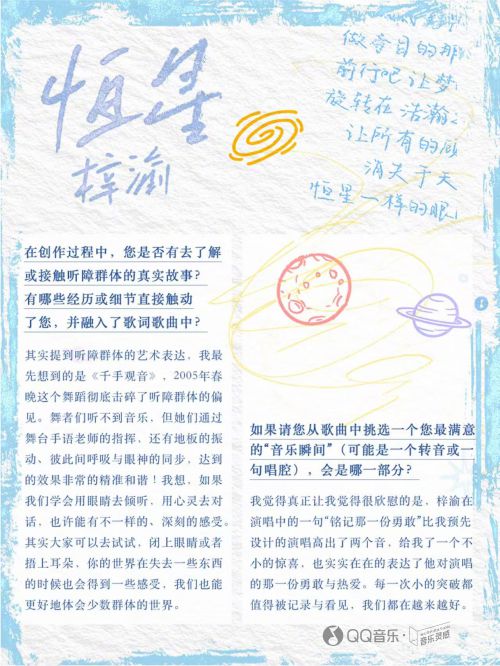 恒星
梓渝
做夺目的那
前行吧 让梦
旋转在 浩瀚
让所有的
消失于天
恒星一样的眼
在创作过程中，您是否有去了解
或接触听障群体的真实故事？
有哪些经历或细节直接触动
了您，并融入了歌词歌曲中？
其实提到听障群体的艺术表达，我最
先想到的是《千手观音》，2005年春
晚这个舞蹈彻底击碎了听障群体的偏
见。舞者们听不到音乐，但她们通过
舞台手语老师的指挥、还有地板的振
动、彼此间呼吸与眼神的同步，达到
的效果非常的精准和谐！我想，如果
我们学会用眼睛去倾听，用心灵去对
话，也许能有不一样的、深刻的感受。
其实大家可以去试试，闭上眼睛或者
捂上耳朵，你的世界在失去一些东西
的时候也会得到一些感受，我们也能
更好地体会少数群体的世界。
如果请您从歌曲中挑选一个您最满意
的“音乐瞬间”（可能是一个转音或一
句唱腔），会是哪一部分？
我觉得真正让我觉得很欣慰的是，梓渝在
演唱中的一句“铭记那一份勇敢”比我预先
设计的演唱高出了两个音，给我了一个不
小的惊喜，也实实在在的表达了他对演唱
的那一份勇敢与热爱。每一次小的突破都
值得被记录与看见，我们都在越来越好。
QQ音乐·音乐灵感